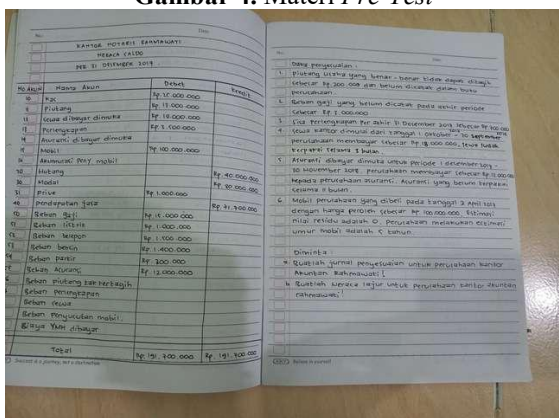 Gambar 4. Materi Pre-Test
No:
Date
KANTOR NOTARIS RAHMAWATI
NERACA SALDO
PER 31 DESEMBER 2017
No Akun
Nama Akun
Debet
Kredit
Kas
Piutang
Rp 15.000.000
Sewa dibayar dimuka
Rp 18.000.000
Perlengkapan
Asuransi dibayar dimuka
Mobil
Rp 100.000.000
Hutang
Rp 40.000.000
Modal
Prive
Rp 1.000.000
Pendapatan jasa
Beban gaji
Rp 15.000.000
Beban listrik
Rp 1.000.000
Beban telepon
Beban bensin
Rp 1.400.000
Beban parkir
Rp 300.000
Beban Asuransi
Rp 12.000.000
Beban piutang tak tertagih
Beban perlengkapan
Beban sewa
Beban penyusutan mobil
Biaya YMH dibayar
Total
Rp 191.700.000
Rp 191.700.000
Success is a journey, not a destination
No:
Date
Data penyesuaian :
1. Piutang usaha yang benar-benar tidak dapat ditagih
sebesar Rp 300.000 dan belum dicatat dalam buku
perusahaan.
2. Beban gaji yang belum dicatat pada akhir periode
sebesar Rp
3. Sisa perlengkapan per akhir 31 Desember 2017 sebesar Rp
4. Sewa kantor dimulai dari tanggal 1 oktober - 30 September
perusahaan membayar sebesar Rp 18.000.000, sewa sudah
terpakai selama 3 bulan.
5. Asuransi dibayar dimuka untuk periode 1 desember 2017 -
30 November 2018. perusahaan membayar sebesar Rp 12.000.000
kepada perusahaan asuransi. Asuransi yang belum terpakai
selama 11 bulan.
6. Mobil perusahaan yang dibeli pada tanggal 2 April
dengan harga peroleh sebesar Rp 100.000.000. Estimasi
nilai residu adalah 0. Perusahaan melakukan estimasi
umur mobil adalah 5 tahun.
Diminta :
a. Buatlah jurnal penyesuaian untuk perusahaan kantor
Akuntan Rahmawati!
b. Buatlah neraca lajur untuk perusahaan kantor akuntan
rahmawati!
Believe in yourself